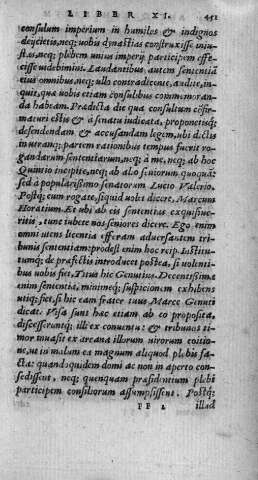 LIBER XI. 451
consulum imperium in humiles & indignos
deijcietis, neq; uobis dynastias construxisse iniu-
stas, neq; plebem unius imperij participem effe-
cisse uidebimini. Laudantibus autem sententiã
eius omnibus, neq; ullo contradicente, audite, in-
quit, quæ uobis etiam consulibus commemoran-
da habeam. Prædicta die qua consultum cõfir-
maturi estis & à senatu iudicata, proponetisq;
defendendam & accusandam legem, ubi dictis
in utranq; partem rationibus tempus fuerit ro-
gandarum sententiarum, neq; à me, neq; ab hoc
Quintio incipite, neq; ab alio seniorum quoquã:
sed à popularissimo senatorum Lucio Valerio.
Postq; eum rogate, siquid uolet dicere, Marcum
Horatium. Et ubi ab eis sententias exquisiue-
ritis, tunc iubete nos seniores dicere. Ego enim
omni utens licentia efferam aduersantem tri-
bunis sententiam: prodest enim hoc reip. Institu-
tumq; de præfectis introducet postea, si uolenti-
bus uobis fiet, Titus hic Genutius. Decentissima
enim sententia, minimeq; suspicionem exhibens
utiq; fiet, si hic eam frater tuus Marce Genuti
dicat. Visa sunt hæc etiam ab eo proposita,
discesseruntq; illi ex conuentu: & tribunos ti-
mor inuasit ex arcana illorum uirorum coitio-
ne, ut in malum ea magnum aliquod plebis fa-
cta: quandoquidem domi ac non in aperto con-
sedissent, neq; quenquam præsidentium plebi
participem consiliorum assumpsissent. Postq;
FF 2 illud